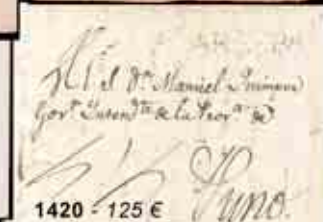 Al S. Dn. Manuel
Govr. Intendte. de la Prova. de
Puno
1420 - 125 €